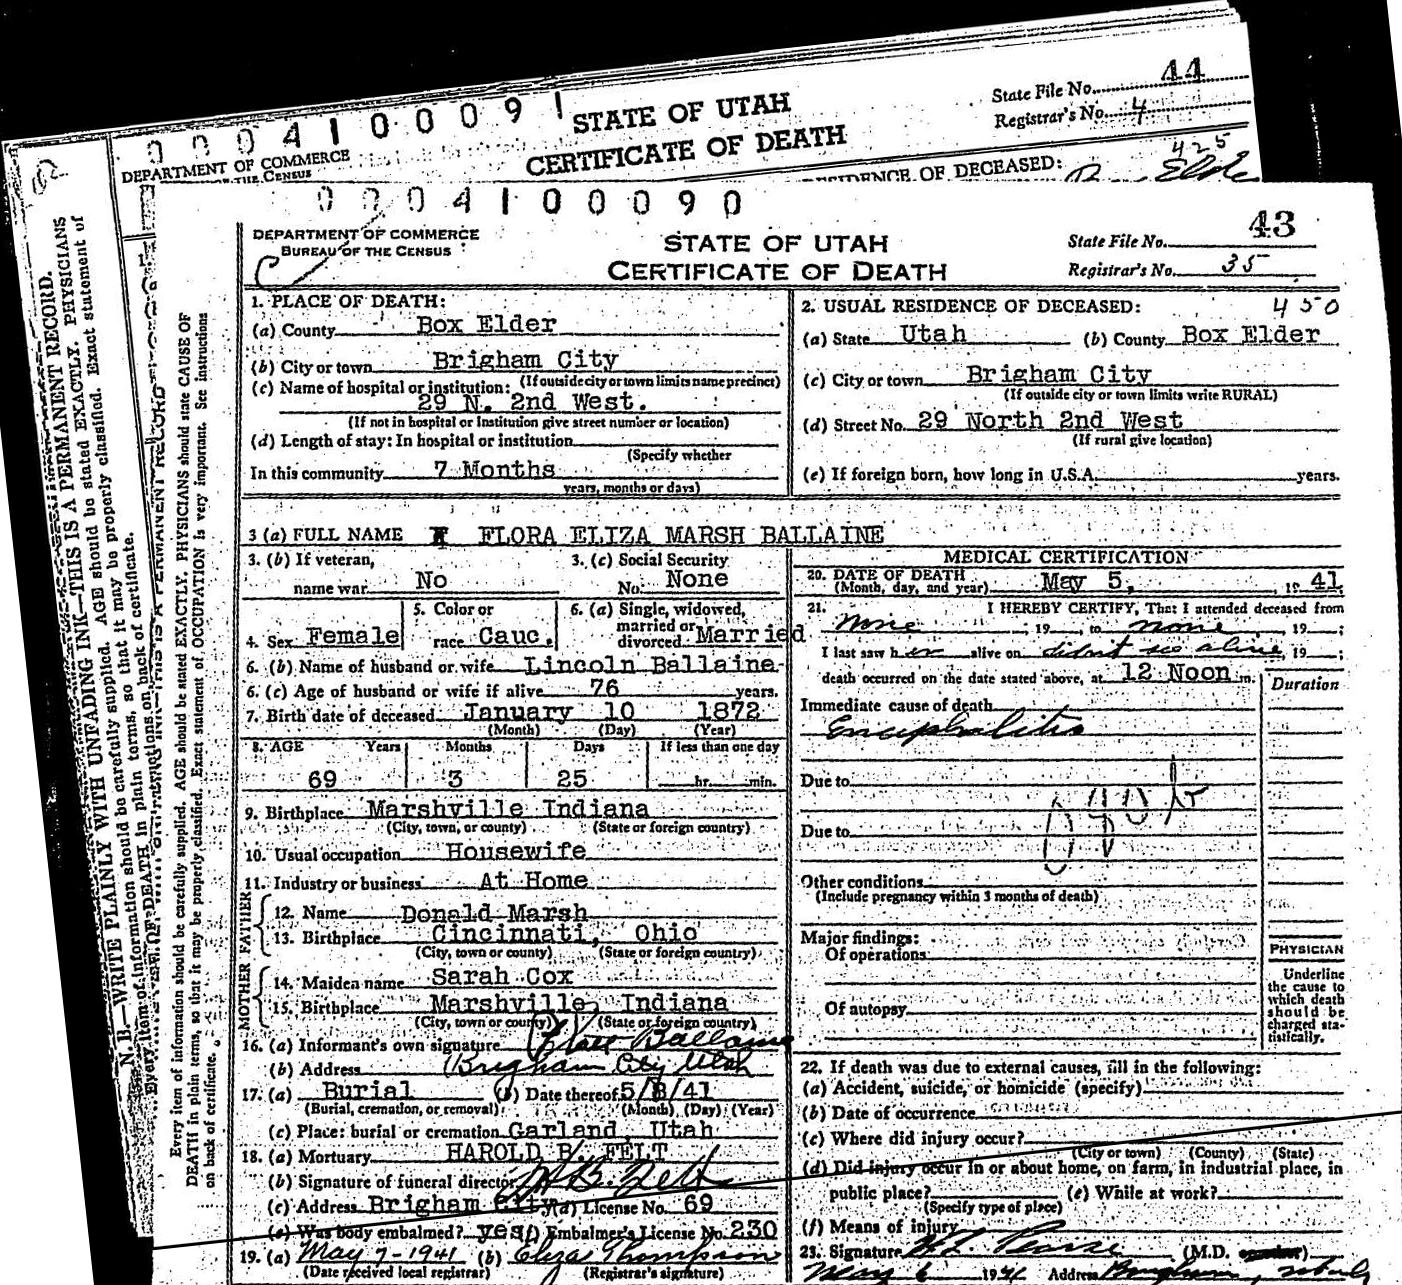 44
State File No.
0004100091 STATE OF UTAH
Registrar's No. 4
DEPARTMENT OF COMMERCE
CERTIFICATE OF DEATH
425
RESIDENCE OF DECEASED:
0004100090
43
DEPARTMENT OF COMMERCE
BUREAU OF THE CENSUS
STATE OF UTAH
CERTIFICATE OF DEATH
State File No.
Registrar's No. 35
N. B.—WRITE PLAINLY WITH UNFADING INK—THIS IS A PERMANENT RECORD.
Every item of information should be carefully supplied. AGE should be stated EXACTLY. PHYSICIANS should state CAUSE OF
DEATH in plain terms, so that it may be properly classified. Exact statement of OCCUPATION is very important. See instructions
on back of certificate.
1. PLACE OF DEATH:
(a) County Box Elder
(b) City or town Brigham City
(If outside city or town limits name precinct)
(c) Name of hospital or institution:
29 N. 2nd West.
(If not in hospital or institution give street number or location)
(d) Length of stay: In hospital or institution
(Specify whether
In this community 7 Months
years, months or days)
2. USUAL RESIDENCE OF DECEASED: 450
(a) State Utah (b) County Box Elder
(c) City or town Brigham City
(If outside city or town limits write RURAL)
(d) Street No. 29 North 2nd West
(If rural give location)
(e) If foreign born, how long in U.S.A. years.
3 (a) FULL NAME FLORA ELIZA MARSH BALLAINE
3. (b) If veteran,
name war No
3. (c) Social Security
No. None
4. Sex Female
5. Color or
race Cauc.
6. (a) Single, widowed,
married or
divorced Married
6. (b) Name of husband or wife Lincoln Ballaine
6. (c) Age of husband or wife if alive 76 years.
7. Birth date of deceased January 10 1872
(Month) (Day) (Year)
8. AGE Years Months Days If less than one day
69 3 25 hr. min.
9. Birthplace Marshville Indiana
(City, town, or county) (State or foreign country)
10. Usual occupation Housewife
11. Industry or business At Home
FATHER
12. Name Donald Marsh
13. Birthplace Cincinnati, Ohio
(City, town or county) (State or foreign country)
MOTHER
14. Maiden name Sarah Cox
15. Birthplace Marshville, Indiana
(City, town or county) (State or foreign country)
16. (a) Informant's own signature Ballaine
(b) Address Brigham City Utah
17. (a) Burial (b) Date thereof 5/8/41
(Burial, cremation, or removal) (Month) (Day) (Year)
(c) Place: burial or cremation Garland, Utah
18. (a) Mortuary HAROLD B. FELT
(b) Signature of funeral director H B. Felt
(c) Address Brigham City (d) License No. 69
(e) Was body embalmed? yes (f) Embalmer's License No. 230
19. (a) May 7-1941 (b) Eliza Thompson
(Date received local registrar) (Registrar's signature)
MEDICAL CERTIFICATION
20. DATE OF DEATH
(Month, day, and year) May 5, , 19 41
21. I HEREBY CERTIFY, That I attended deceased from
None , 19 , to none , 19 ;
I last saw her alive on didn't see alive, 19 ;
death occurred on the date stated above, at 12 Noon m.
Duration
Immediate cause of death
Encephalitis
Due to
Due to
Other conditions
(Include pregnancy within 3 months of death)
Major findings:
Of operations
Of autopsy
PHYSICIAN
Underline
the cause to
which death
should be
charged sta-
tistically.
22. If death was due to external causes, fill in the following:
(a) Accident, suicide, or homicide (specify)
(b) Date of occurrence
(c) Where did injury occur?
(City or town) (County) (State)
(d) Did injury occur in or about home, on farm, in industrial place, in
public place? (e) While at work?
(Specify type of place)
(f) Means of injury
23. Signature Pearse (M.D. )
May 6 1941 Address Brigham,